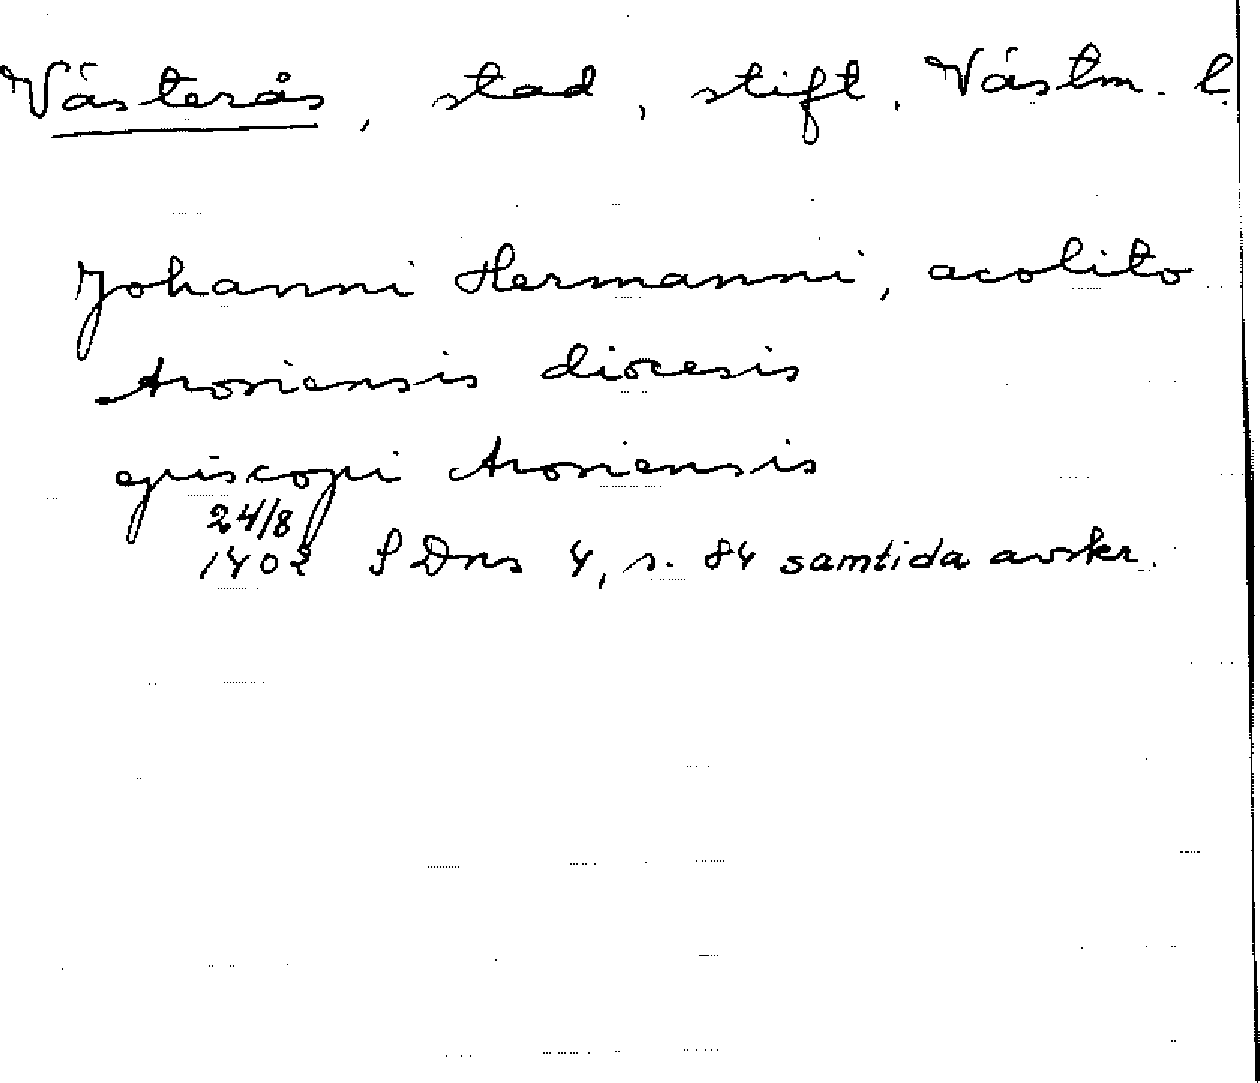 Västerås, stad, stift. Västm. l.
Johanni Hermanni, acolito
Arosiensis diocesis
episcopi Arosiensis
24/8
1402 SDns 4, s. 84 samtida avskr.